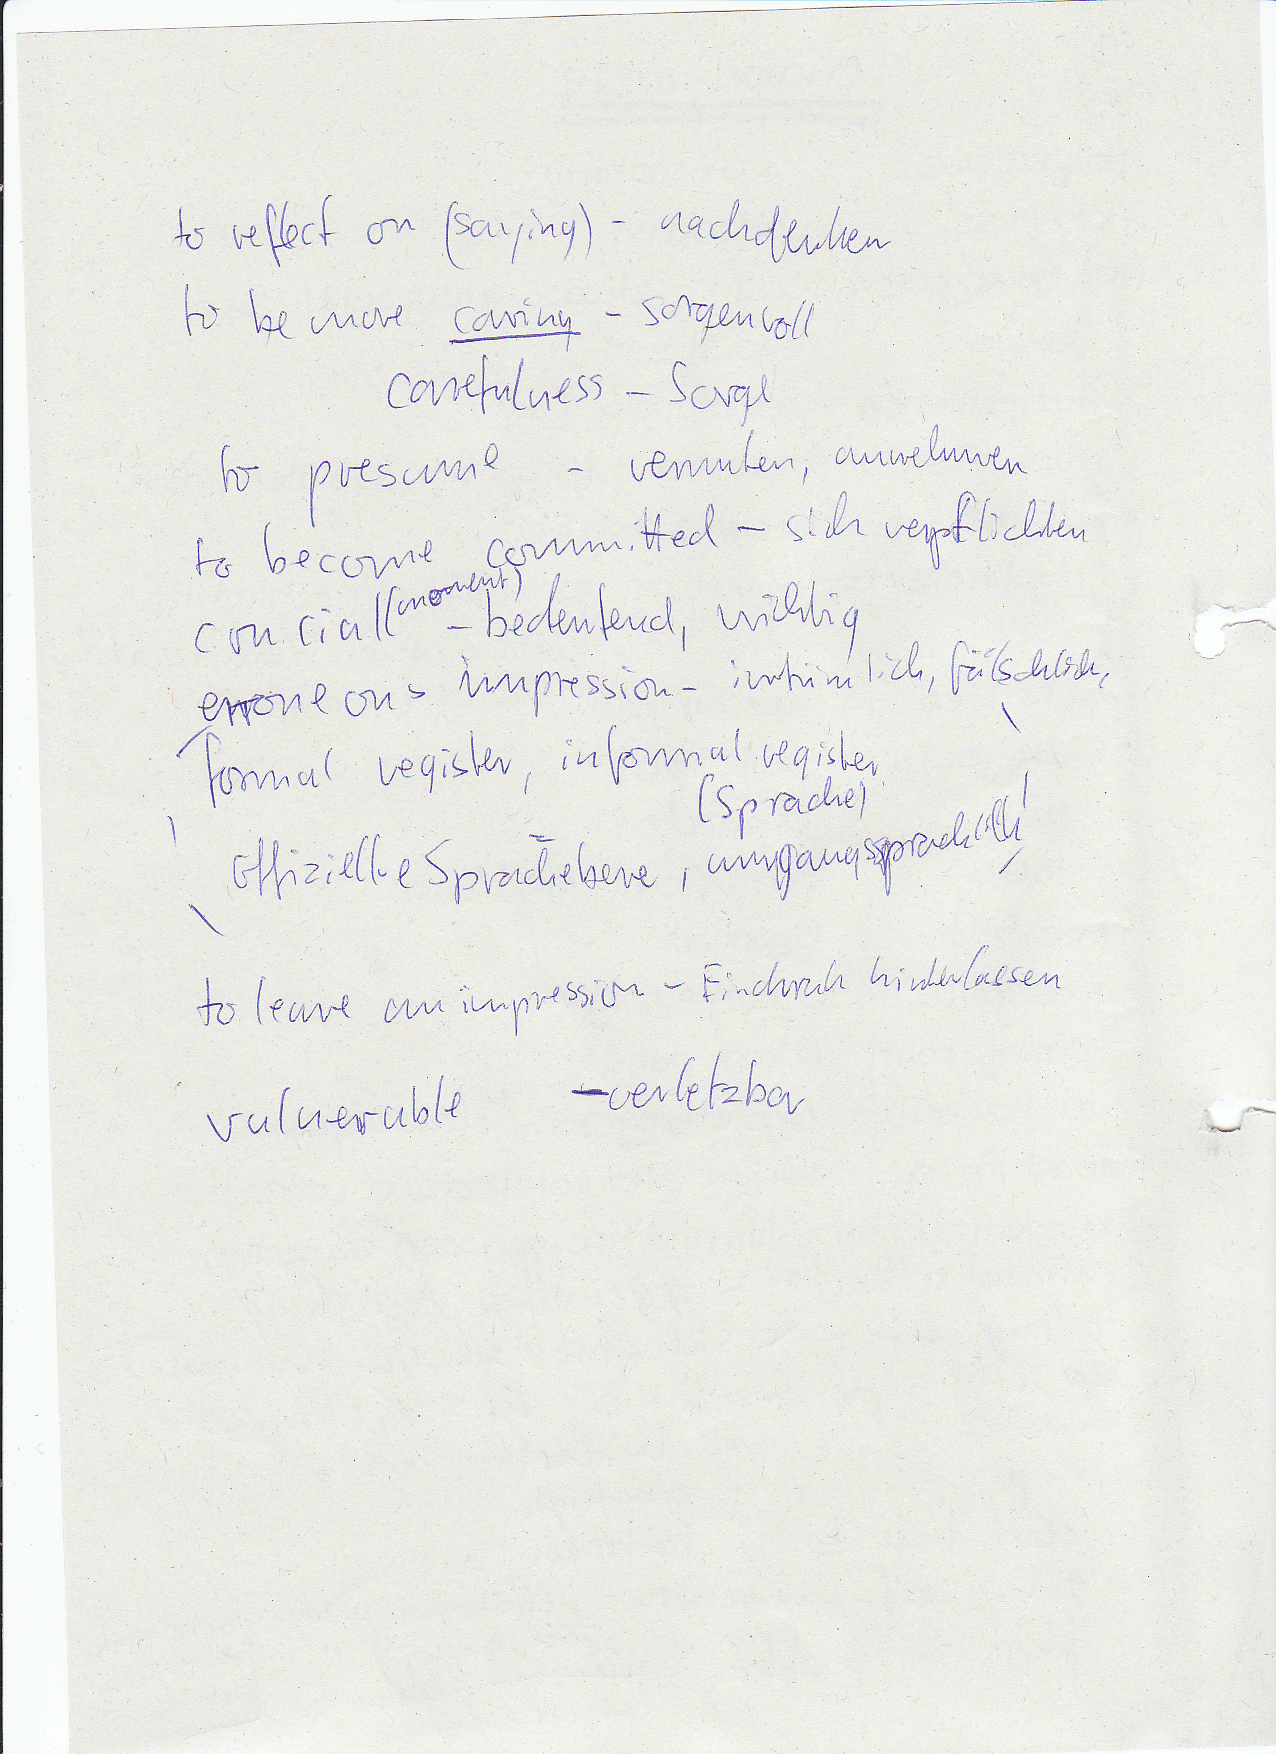 to reflect on (saying) - nachdenken
to be more caring - sorgenvoll
carefulness - Sorge
to presume - vermuten, annehmen
to become committed - sich verpflichten
(moment)
crucial - bedeutend, wichtig
erroneous impression - irrtümlich, fälschlich,
formal register, informal register
(Sprache)
offizielle Sprachebene, umgangssprachlich
to leave an impression - Eindruck hinterlassen
vulnerable - verletzbar